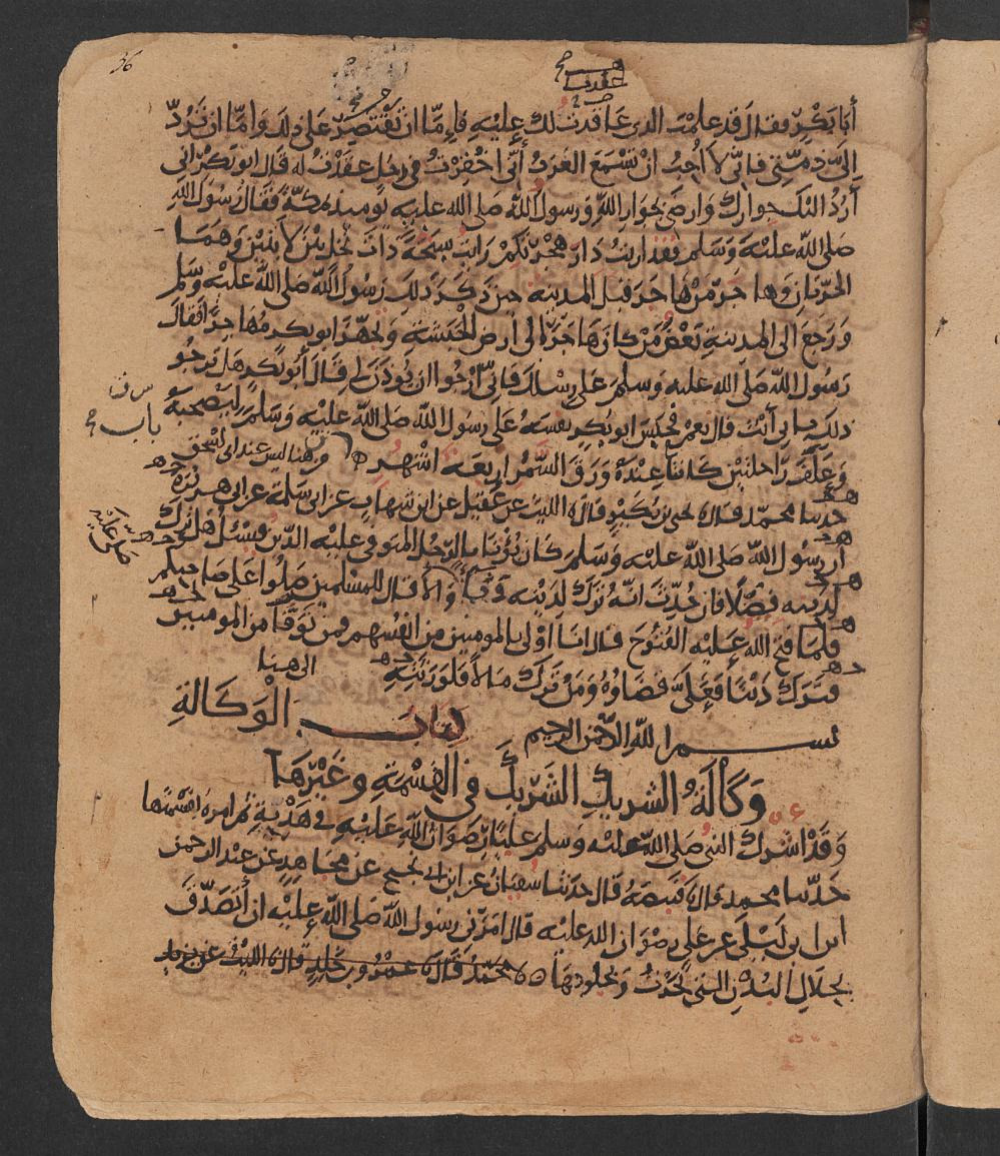 36
عقدت
أبا بكر فقال قد علمت الذي عاقدت لك عليه فإما ان تقتصر على ذلك واما ان ترد
إلي ذمتي فاني لا أحب ان تسمع العرب أني اخفرت في رجل عقدت له قال ابو بكر اني
أرد اليك جوارك وارضى بجوار الله ورسول الله صلى الله عليه يومئذ بمكة فقال رسول الله
صلى الله عليه وسلم فقد اريت دار هجرتكم رايت سبخة ذات نخل بين لابتين وهما
الحرتان وهاجر من هاجر قبل المدينه حين ذكر ذلك رسول الله صلى الله عليه وسلم
ورجع الى المدينة بعض من كان هاجر الى أرض الحبشة وتجهز ابو بكر مهاجرا فقال
رسول الله صلى الله عليه وسلم على رسلك فاني أرجوا ان يوذن لي قال أبو بكر هل ترجو
ذلك بابي أنت قال نعم فحبس ابو بكر نفسه على رسول الله صلى الله عليه وسلم ليصحبه
باب
وعلف راحلتين كانتا عنده ورق السمر اربعة اشهر من هنا ليس عند ابي اسحق
حدثنا محمد قال يحيى بن بكير قال الليث عن عقيل عن ابن شهاب عن ابي سلمة عن ابي هريرة
أن رسول الله صلى الله عليه وسلم كان يؤتا بالرجل المتوفي عليه الدين فيسئل هل ترك
صلى عليه
لدينه فضلا فان حدث انه ترك لدينه وفا والا قال للمسلمين صلوا على صاحبكم
فلما فتح الله عليه الفتوح قال انا اولى بالمومنين من انفسهم فمن توفا من المومنين
فترك دينا فعلي قضاوه ومن ترك مالا فلورثته
الى هنا
بسم الله الرحمن الرحيم كتاب الوكالة
وكالة الشريك الشريك في القسمة وغيرها
وقد اشرك النبي صلى الله عليه وسلم عليا رضوان الله عليه في هديه ثم امره بقسمتها
حدثنا محمد قال قبيصة قال حدثنا سفيان عن ابن ابي نجيح عن مجاهد عن عبد الرحمن
ابن ابي ليلى عن علي رضوان الله عليه قال امرني رسول الله صلى الله عليه ان أتصدق
بجلال البدن التي نحرت وبجلودها محمد قال عمرو بن خلد قال الليث عن يزيد